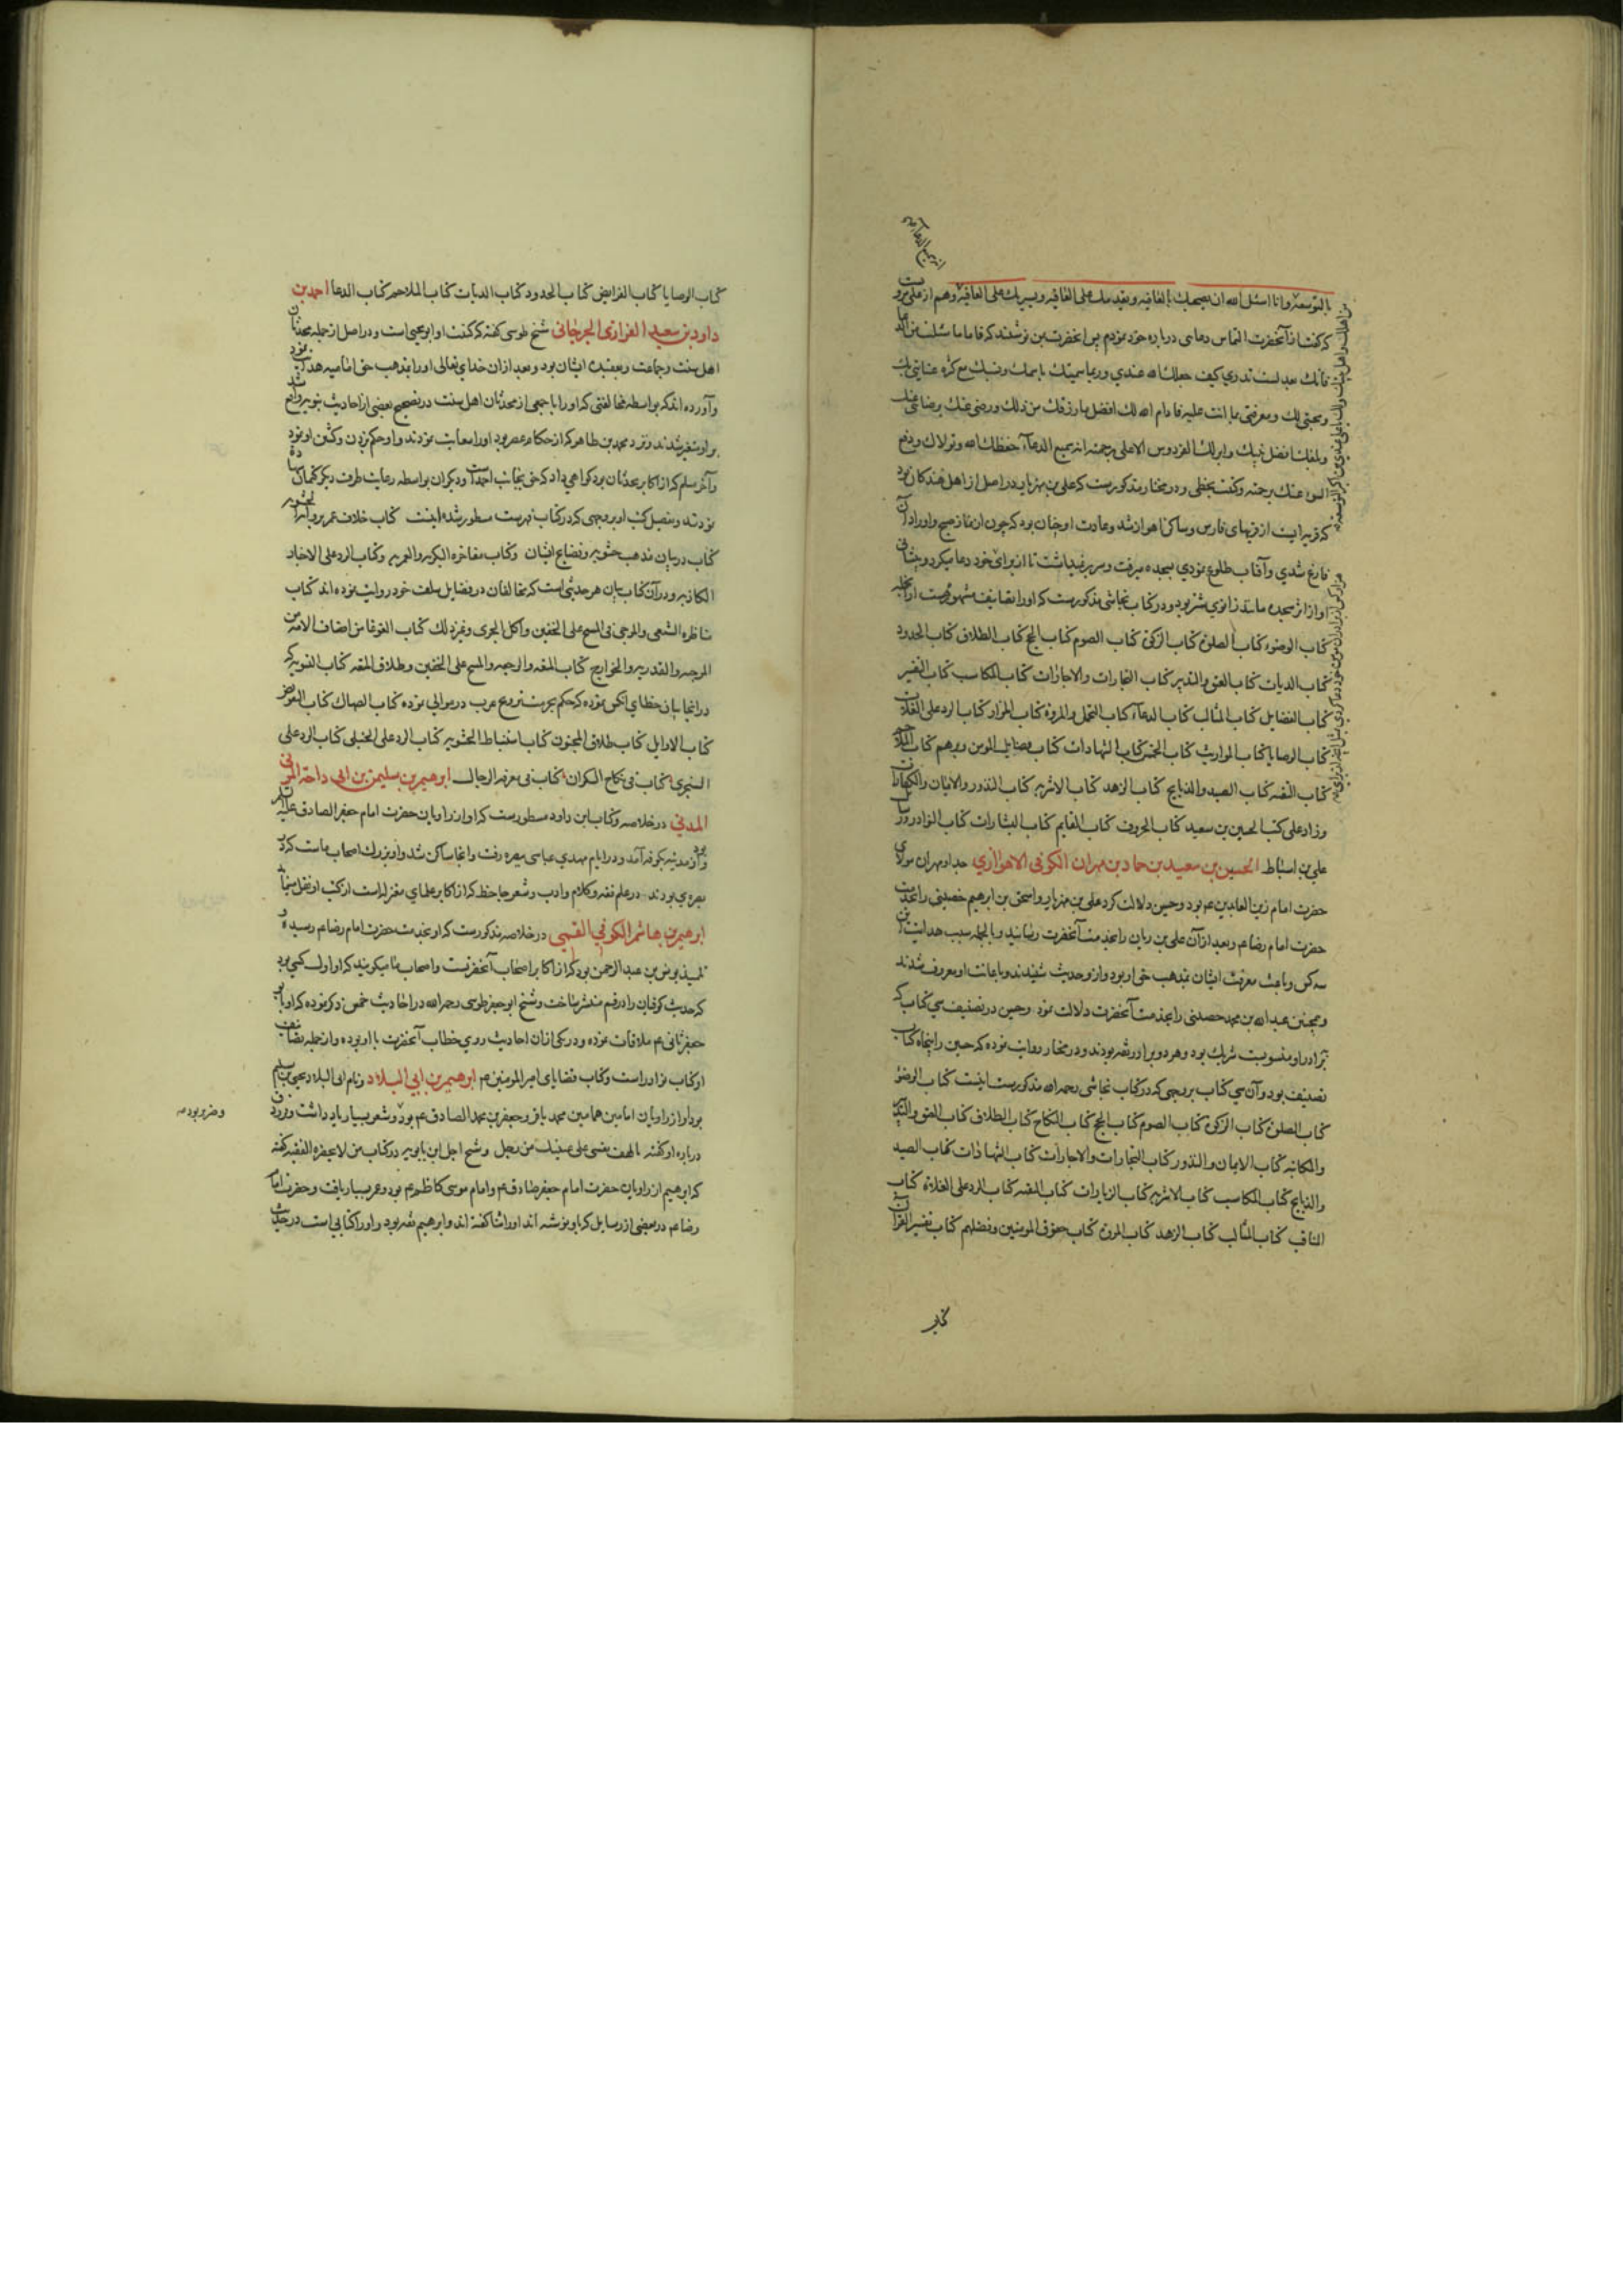 بالتوسعة وانا اسئل الله ان يصحبك بالعافية ويقدمك على العافية ويسيرك على العافية وهم از علي مرويست
که گفت از آنحضرت التماس دعایی درباره خود نمودم پس آنحضرت بمن نوشتند که فاما ما سئلت من الدعا
فانك بعد لست تدري كيف جعلك الله عندي وربما سميتك باسمك ونسبك مع كثرة عنايتي بك
ومحبتي لك ومعرفتي بما انت عليه فادام الله لك افضل ما رزقك من ذلك ورضي عنك برضائي عنك
وبلغك افضل نيتك وانزلك الفردوس الاعلى برحمته انه سميع الدعاء حفظك الله وتولاك ودفع
السوء عنك برحمته وكتبت بخطي و در مختار مذکورست که علی بن مهزیار در اصل از اهل هندکان بود
که قریه ایست از قریهای فارس وساکن اهواز شد وعادت او چنان بود که چون از نماز صبح و اوراد آن
فارغ شدی وآفتاب طلوع نمودی بسجده میرفت وسر بر نمیداشت تا از برای خود دعا میکرد وپیشانی
او از اثر سجده مانند زانوی شتر بود ودر کتاب نجاشی مذکورست که او را تصانیف مشهورست از جمله
کتاب الوضوء کتاب الصلوة کتاب الزکوة کتاب الصوم کتاب الحج کتاب الطلاق کتاب الحدود
کتاب الدیات کتاب العتق والتدبیر کتاب التجارات والاجارات کتاب المکاسب کتاب التفسیر
کتاب الفضایل کتاب المثالب کتاب الدعاء کتاب التجمل والمروة کتاب المزار کتاب الرد علی الغلات
کتاب الوصایا کتاب المواریث کتاب الخمس کتاب الشهادات کتاب فضایل المومن وبرهم کتاب الملاحم
کتاب التقیه کتاب الصید والذبایح کتاب الزهد کتاب الاشربه کتاب النذور والایمان والکفارات
وزاد علی کتب الحسین بن سعید کتاب الحروف کتاب القایم کتاب البشارات کتاب النوادر ورسایل
علی بن اسباط الحسین بن سعید بن حماد بن مهران الکوفی الاهوازی جد او مهران مولای
حضرت امام زین العابدین عم بود وحسین دلالت کرد علی بن مهزیار واسحق بن ابرهیم حضینی را بخدمت
حضرت امام رضا عم وبعد از آن علی بن ریان را بخدمت آنحضرت رسانید وبالجمله سبب هدایت این
سه کس وباعث معرفت ایشان بمذهب حق او بود واز او حدیث شنیدند وباعانت او معروف شدند
وهمچنین عبدالله بن محمد حضینی را بخدمت آنحضرت دلالت نمود وحسن در تصنیف سی کتاب که
برادر او منسوبست شریک بود وهر دو برادر ثقه بودند ودر مختار روایت نموده که حسین را پنجاه کتاب
تصنیف بود وآن سی کتاب بروجهی که در کتاب نجاشی رحمه الله مذکورست اینست کتاب الوضوء
کتاب الصلوة کتاب الزکوة کتاب الصوم کتاب الحج کتاب النکاح کتاب الطلاق کتاب العتق والتدبیر
والمکاتبه کتاب الایمان والنذور کتاب التجارات والاجارات کتاب الشهادات کتاب الصید
والذبایح کتاب المکاسب کتاب الاشربه کتاب الزیارات کتاب التقیه کتاب الرد علی الغلاة کتاب
المناقب کتاب المثالب کتاب الزهد کتاب المروة کتاب حقوق المومنین وفضلهم کتاب تفسیر القرآن
کتاب
کتاب الوصایا کتاب الفرایض کتاب الحدود کتاب الدیات کتاب الملاحم کتاب الدعا احمد بن
داود بن سعید الفزاری الجرجانی شیخ طوسی گفته که کنیت او ابو یحیی است ودر اصل از جمله محدثان
اهل سنت وجماعت وبعقیده ایشان بود وبعد از ان خدای تعالی او را بمذهب حق امامیه هدایت نمود
وآورده اند که بواسطه مخالفتی که او را با جمعی از محدثان اهل سنت در تصحیح بعضی از احادیث نبویه واقع شد
بر او متغیر شدند ونزد محمد بن طاهر که از حکام عصر بود او را معاتب نمودند واو حکم بزدن وکشتن او نمود
وآخر مسلم که از اکابر محدثان بود گواهی داد که حق بجانب احمد است ودیگران بواسطه رعایت طرف دیگر کتمان شهادة
نمودند وتفصیل کتب او بروجهی که در کتاب فهرست مسطور شده اینست کتاب خلاف عمر بروایة الحشویه
کتاب در بیان مذهب حشویه وفضایح ایشان وکتاب مفاخره البکریه والعمریه وکتاب الرد علی الاخبار
الکاذبه ودر آن کتاب بیان هر حدیثی است که مخالفان در فضایل سلف خود روایت نموده اند کتاب
مناظره الشیعی والمرجی فی المسح علی الخفین واکل الجری وغیر ذلک کتاب الغوغا من اصناف الامه من
المرجیه والقدریه والخوارج کتاب المتعه والرجعه والمسح علی الخفین وطلاق المتعه کتاب التسویه که
در انجا بیان خطای آنکس نموده که حکم بحرمت تزویج عرب در موالی نموده کتاب الصهاک کتاب التفویض
کتاب الاوایل کتاب طلاق المجنون کتاب استنباط الحشویه کتاب الرد علی الحنبلی کتاب الرد علی
السجزی کتاب فی نکاح السکران کتاب فی معرفه الرجال ابرهیم بن سلیمن بن ابی داحة المزنی
المدنی در خلاصه وکتاب ابن داود مسطورست که او از راویان حضرت امام جعفر الصادق علیه السلم
بود واز مدینه بکوفه آمد ودر ایام مهدی عباسی ببصره رفت وانجا ساکن شد واو بزرک اصحاب ماست که در
بصره می بودند در علم فقه وکلام وادب وشعر جاحظ که از اکابر علمای معتزله است از کتب او نقل مینماید
ابرهیم بن هاشم الکوفی القمی در خلاصه مذکورست که او بخدمت حضرت امام رضا عم رسیده و
تلمیذ یونس بن عبد الرحمن بود که از اکابر اصحاب آنحضرتست واصحاب ما میگویند که او اول کسی بود
که حدیث کوفیان را در قم منتشر ساخت وشیخ ابو جعفر طوسی رحمه الله در احادیث خمس ذکر نموده که او با ابو
جعفر ثانی عم ملاقات نموده ودر یکی از ان احادیث روی خطاب آنحضرت با او بوده واز جمله تصانیف
او کتاب نوادر است وکتاب قضایای امیر المومنین عم ابرهیم بن ابی البلاد ونام ابی البلاد یحیی بن سلیم
بود او از راویان امامین همامین محمد باقر وجعفر بن محمد الصادق عم بود وشعر بسیار یاد داشت وفرزدق
وضریر بود صه
درباره او گفته یا لهف نفسی علی عینیک من رجل وشیخ اجل ابن بابویه در کتاب من لا یحضره الفقیه گفته
که ابرهیم از راویان حضرت امام جعفر صادق عم وامام موسی کاظم عم بود وعمر بسیار یافت وحضرت امام
رضا عم در بعضی از رسایل که باو نوشته اند او را ثنا گفته اند وابرهیم ثقه بود واو را کتابی است در حدیث